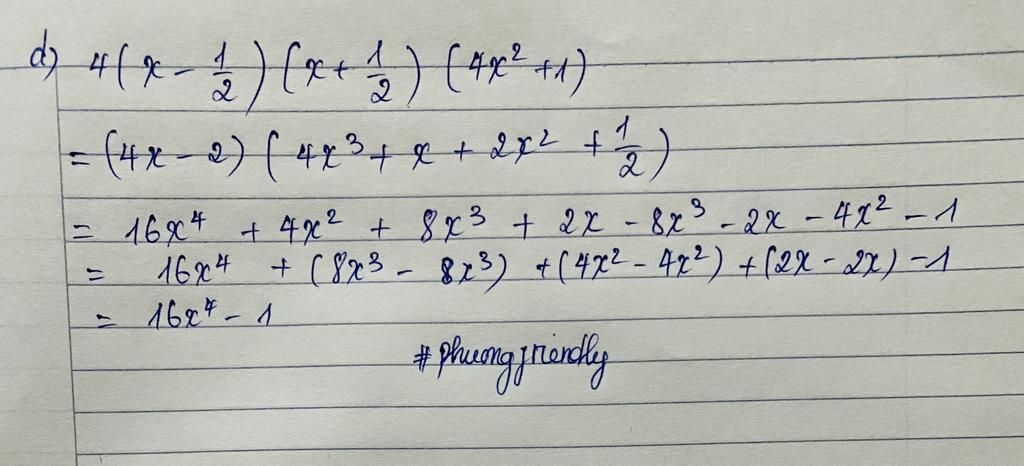 d) 4(x - 1/2)(x + 1/2)(4x² + 1)
= (4x - 2)(4x³ + x + 2x² + 1/2)
= 16x⁴ + 4x² + 8x³ + 2x - 8x³ - 2x - 4x² - 1
= 16x⁴ + (8x³ - 8x³) + (4x² - 4x²) + (2x - 2x) - 1
= 16x⁴ - 1
#phuongfriendly